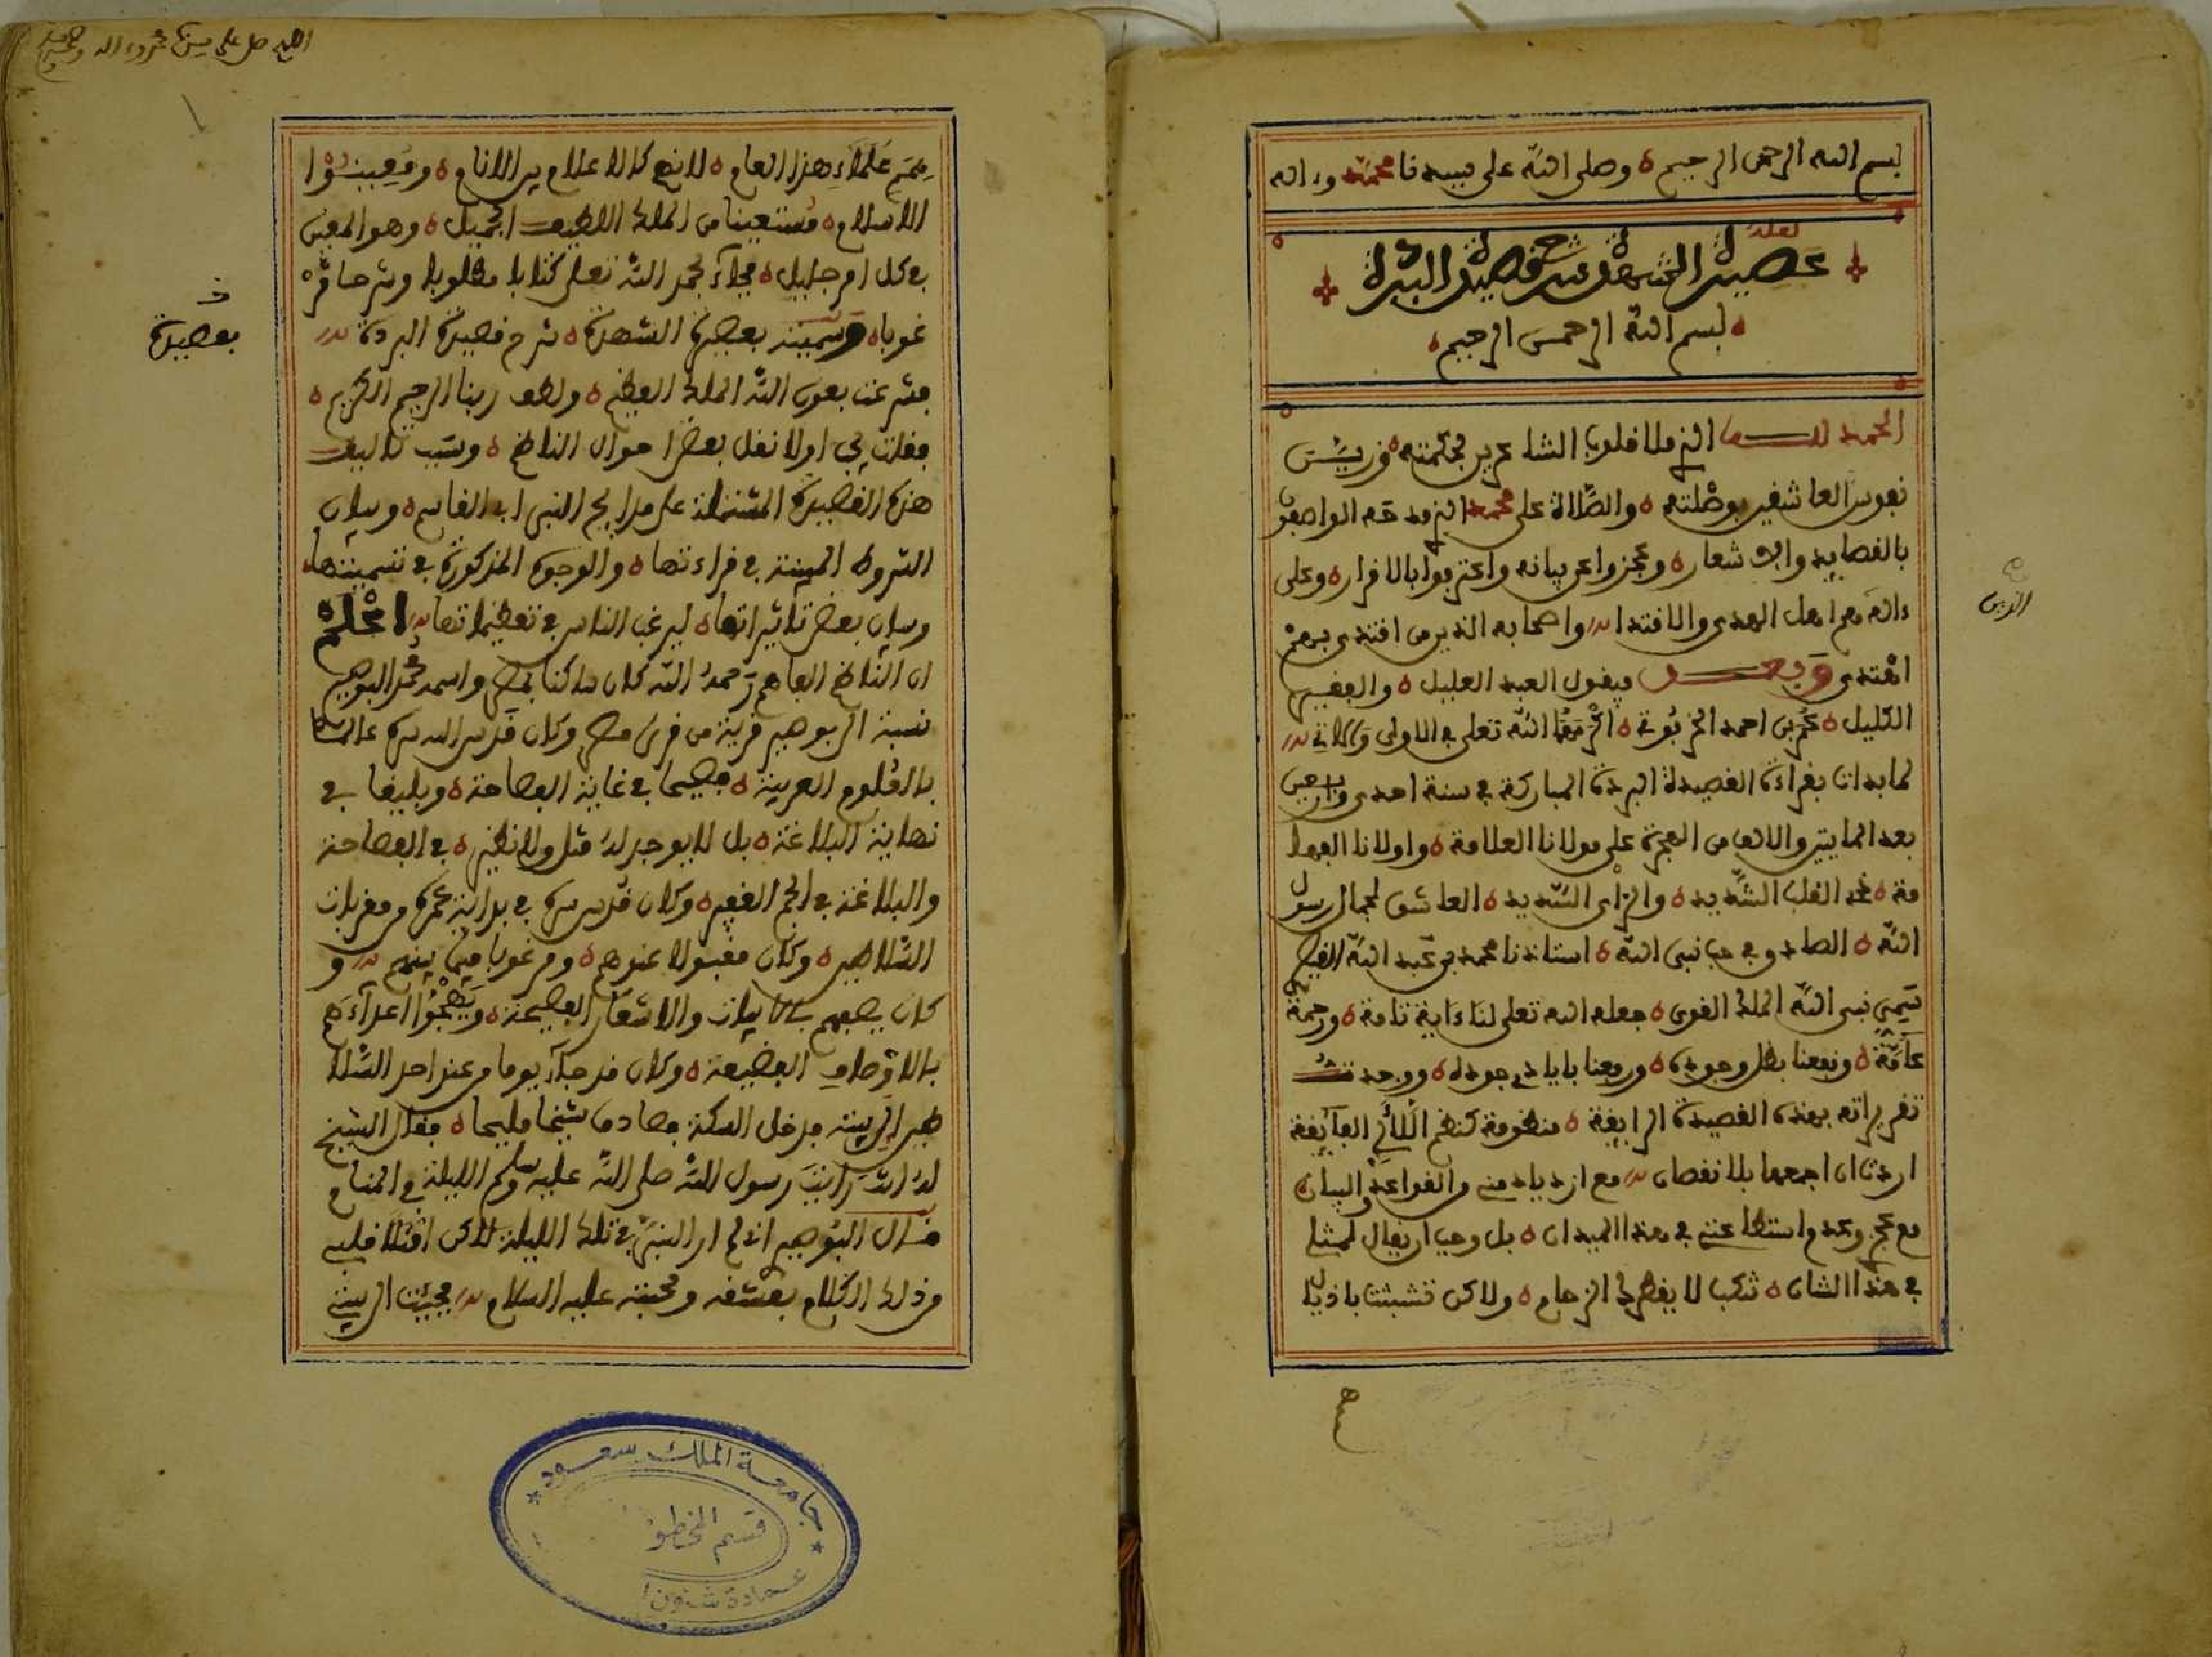 بسم الله الرحمن الرحيم ه وصلى الله على سيدنا محمد وءاله
لعله
عصيدة الشهدة شرح قصيدة البردة
بسم الله الرحمن الرحيم
الحمد لله الذي ملأ قلوب الشاعرين بحكمته ه وزين
نفوس العاشقين بوصلته ه والصلاة على محمد الذي مدحه الواصفون
بالقصايد والاشعار ه وعجزوا عن بيانه واعترفوا بالاقرار ه وعلى
ءاله هم اهل الهدى والاقتدا واصحابه الذين من اقتدى بهم
اهتدى وبعد فيقول العبد العليل ه والفقير
الكليل ه عمر بن احمد الخربوتي ه اكرمهما الله تعلى في الاولى والاتي
لما بدات بقراءة القصيدة البردة المباركة في سنة احدى واربعين
بعد المايتين والالف من الهجرة على مولانا العلامة ه واولانا الفهما
مة ه الشديد ه والراي السديد ه العاشق لجمال رسول
الله ه الصادق في حب نبي الله ه استاذنا محمد بن عبد الله
سمي نبي الله الملك القوي ه جعله الله تعلى لنا ءاية تامة ه ورحمة
عامة ه ونفعنا بظل وجوده ه ورفعنا بايادي جوده ه ووجدت
تقريراته بهذه القصيدة الرايقة ه منظومة كنظم اللآلي الفآيقة
اردت ان اجمعها بلا نقصان مع ازدياد مني من القواعد والبيان
مع عجزي وعدم استطاعتي في هذا الميدان ه بل وحق ان يقال لمثلي
في هذا الشان ه تنكب لا يقطرك الزحام ه ولاكن تشبثت باذيال
الذين
اللهم صل على سيدنا محمد وءاله
همم علماء هذا العام ه لانهم كالاعلام بين الانام ه ومعينوا
الاسلام ه مستعينا من الملك اللطيف الجميل ه وهو المعين
في كل امر جليل ه فجآء بحمد الله تعلى كتابا مطلوبا وشرحا مر
غوبا ه وسميته بعصيدة الشهدة ه شرح قصيدة البردة
فشرعت بعون الله الملك العظيم ه ولطف ربنا الرحيم الكريم ه
فقلت اولا نقل بعض احوال الناظم ه وسبب تاليف
هذه القصيدة المشتملة على مدايح النبي ابي القاسم ه وبيان
الشروط المبينة في قراءتها ه والوجوه المذكورة في تسميتها ه
وبيان بعض تاثيراتها ه ليرغب الناس في تعظيماتها اعلم
ان الناظم الفاهم رحمه الله كان ساكنا بمصر واسمه محمد البوصير
نسبة الى بوصير قرية من قرى مصر وكان قدس الله سره عالما
بالعلوم العربية ه فصيحا في غاية الفصاحة ه وبليغا في
نهاية البلاغة ه بل لا يوجد له مثل ولا نظير ه في الفصاحة
والبلاغة في الجم الغفير ه وكان قدس سره في بداية عمره من مقربات
السلاطين ه وكان مقبولا عندهم ه ومرغوبا فيما بينهم و
كان يصفهم بالابيات والاشعار الفصيحة ه ويهجوا اعدآءهم
بالاوصاف الفضيحة ه وكان قد جآء يوما من عند احد السلا
طين الى بيته فدخل السكة فصادف شيخا مليحا ه فقال الشيخ
له انت رايت رسول الله صلى الله عليه وسلم الليلة في المنام
فقال البوصير اني لم ار النبي في تلك الليلة لاكن امتلا قلبي
من ذلك الكلام بعشقه ومحبته عليه السلام فجئت الى بيتي
خ
بعصيدة
جامعة الملك سعود
قسم المخطو
عمادة شئون